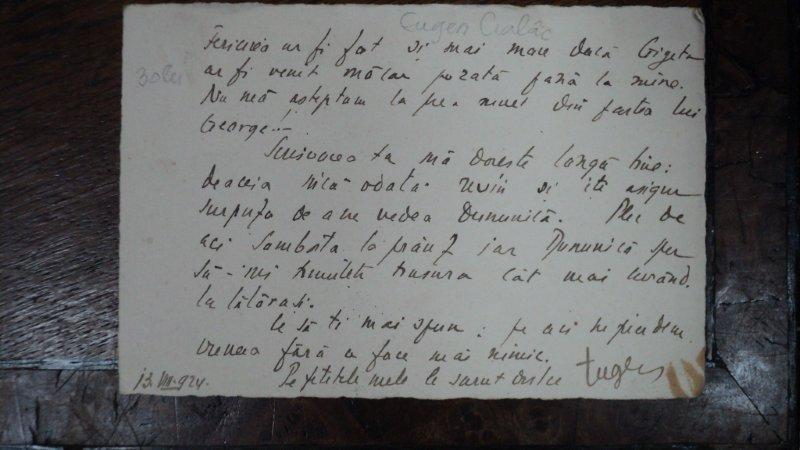 Eugen Ciolac
30 lei
Fericirea ar fi fost și mai mare dacă Gigeta
ar fi venit măcar până la mine.
Nu mă așteptam la pea nunei din partea lui
George!-
Scrisoarea ta mă dorește lângă tine:
deaceia încă odată revin și îți asigur
surpriza de a ne vedea Dumunică. Plec de
aci Sâmbăta la prânz iar Dumunică sper
să-mi trimiteți trăsura cât mai curând.
la tătărași.
Ce să ți mai spun: pe aci ne pierdem
vremea fără a face mai nimic.
Pe fetițele mele le sărut dulce Eugen
13.VIII.924.